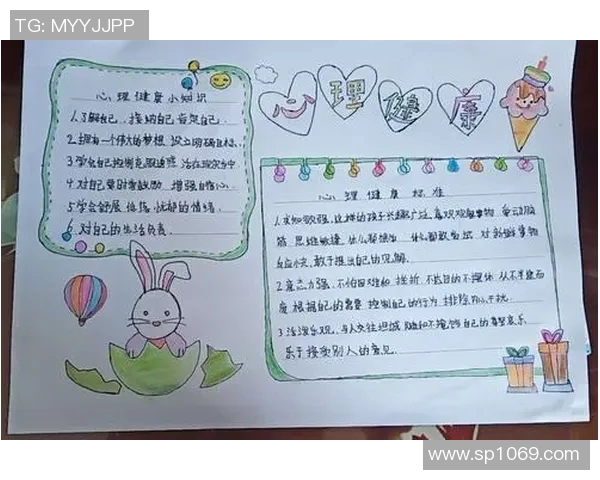 TG: MYYJJPP
心理健康
心理健康小知识
1.了解自己、接纳自己、肯定自己.
2.拥有一个伟大的梦想 设立明确目标.
3.学会自己控制克服迷惑 活在现实当中
4.对自己要时常鼓励 增强自信心.
5.学会舒展 低落、忧郁的情绪.
6.对自己的生活负责.
心理健康标准
1.求知欲强.这样的孩子兴趣广泛.喜欢观察事物 爱动脑
筋 思维敏捷 什么都想学 什么都敢尝试 对新鲜事物
反应快.敢于提出自己的见解.
2.意志力强.不怕困难和 挫折.不盲目的不擢体 从不半途而
废 根据自己的需要 控制自己的行为 排除内心干扰.
3.活泼乐观.与人交往坦诚 随和不掩饰自己的喜怒哀乐
乐于接受别人的意见.
www.sp1069.com